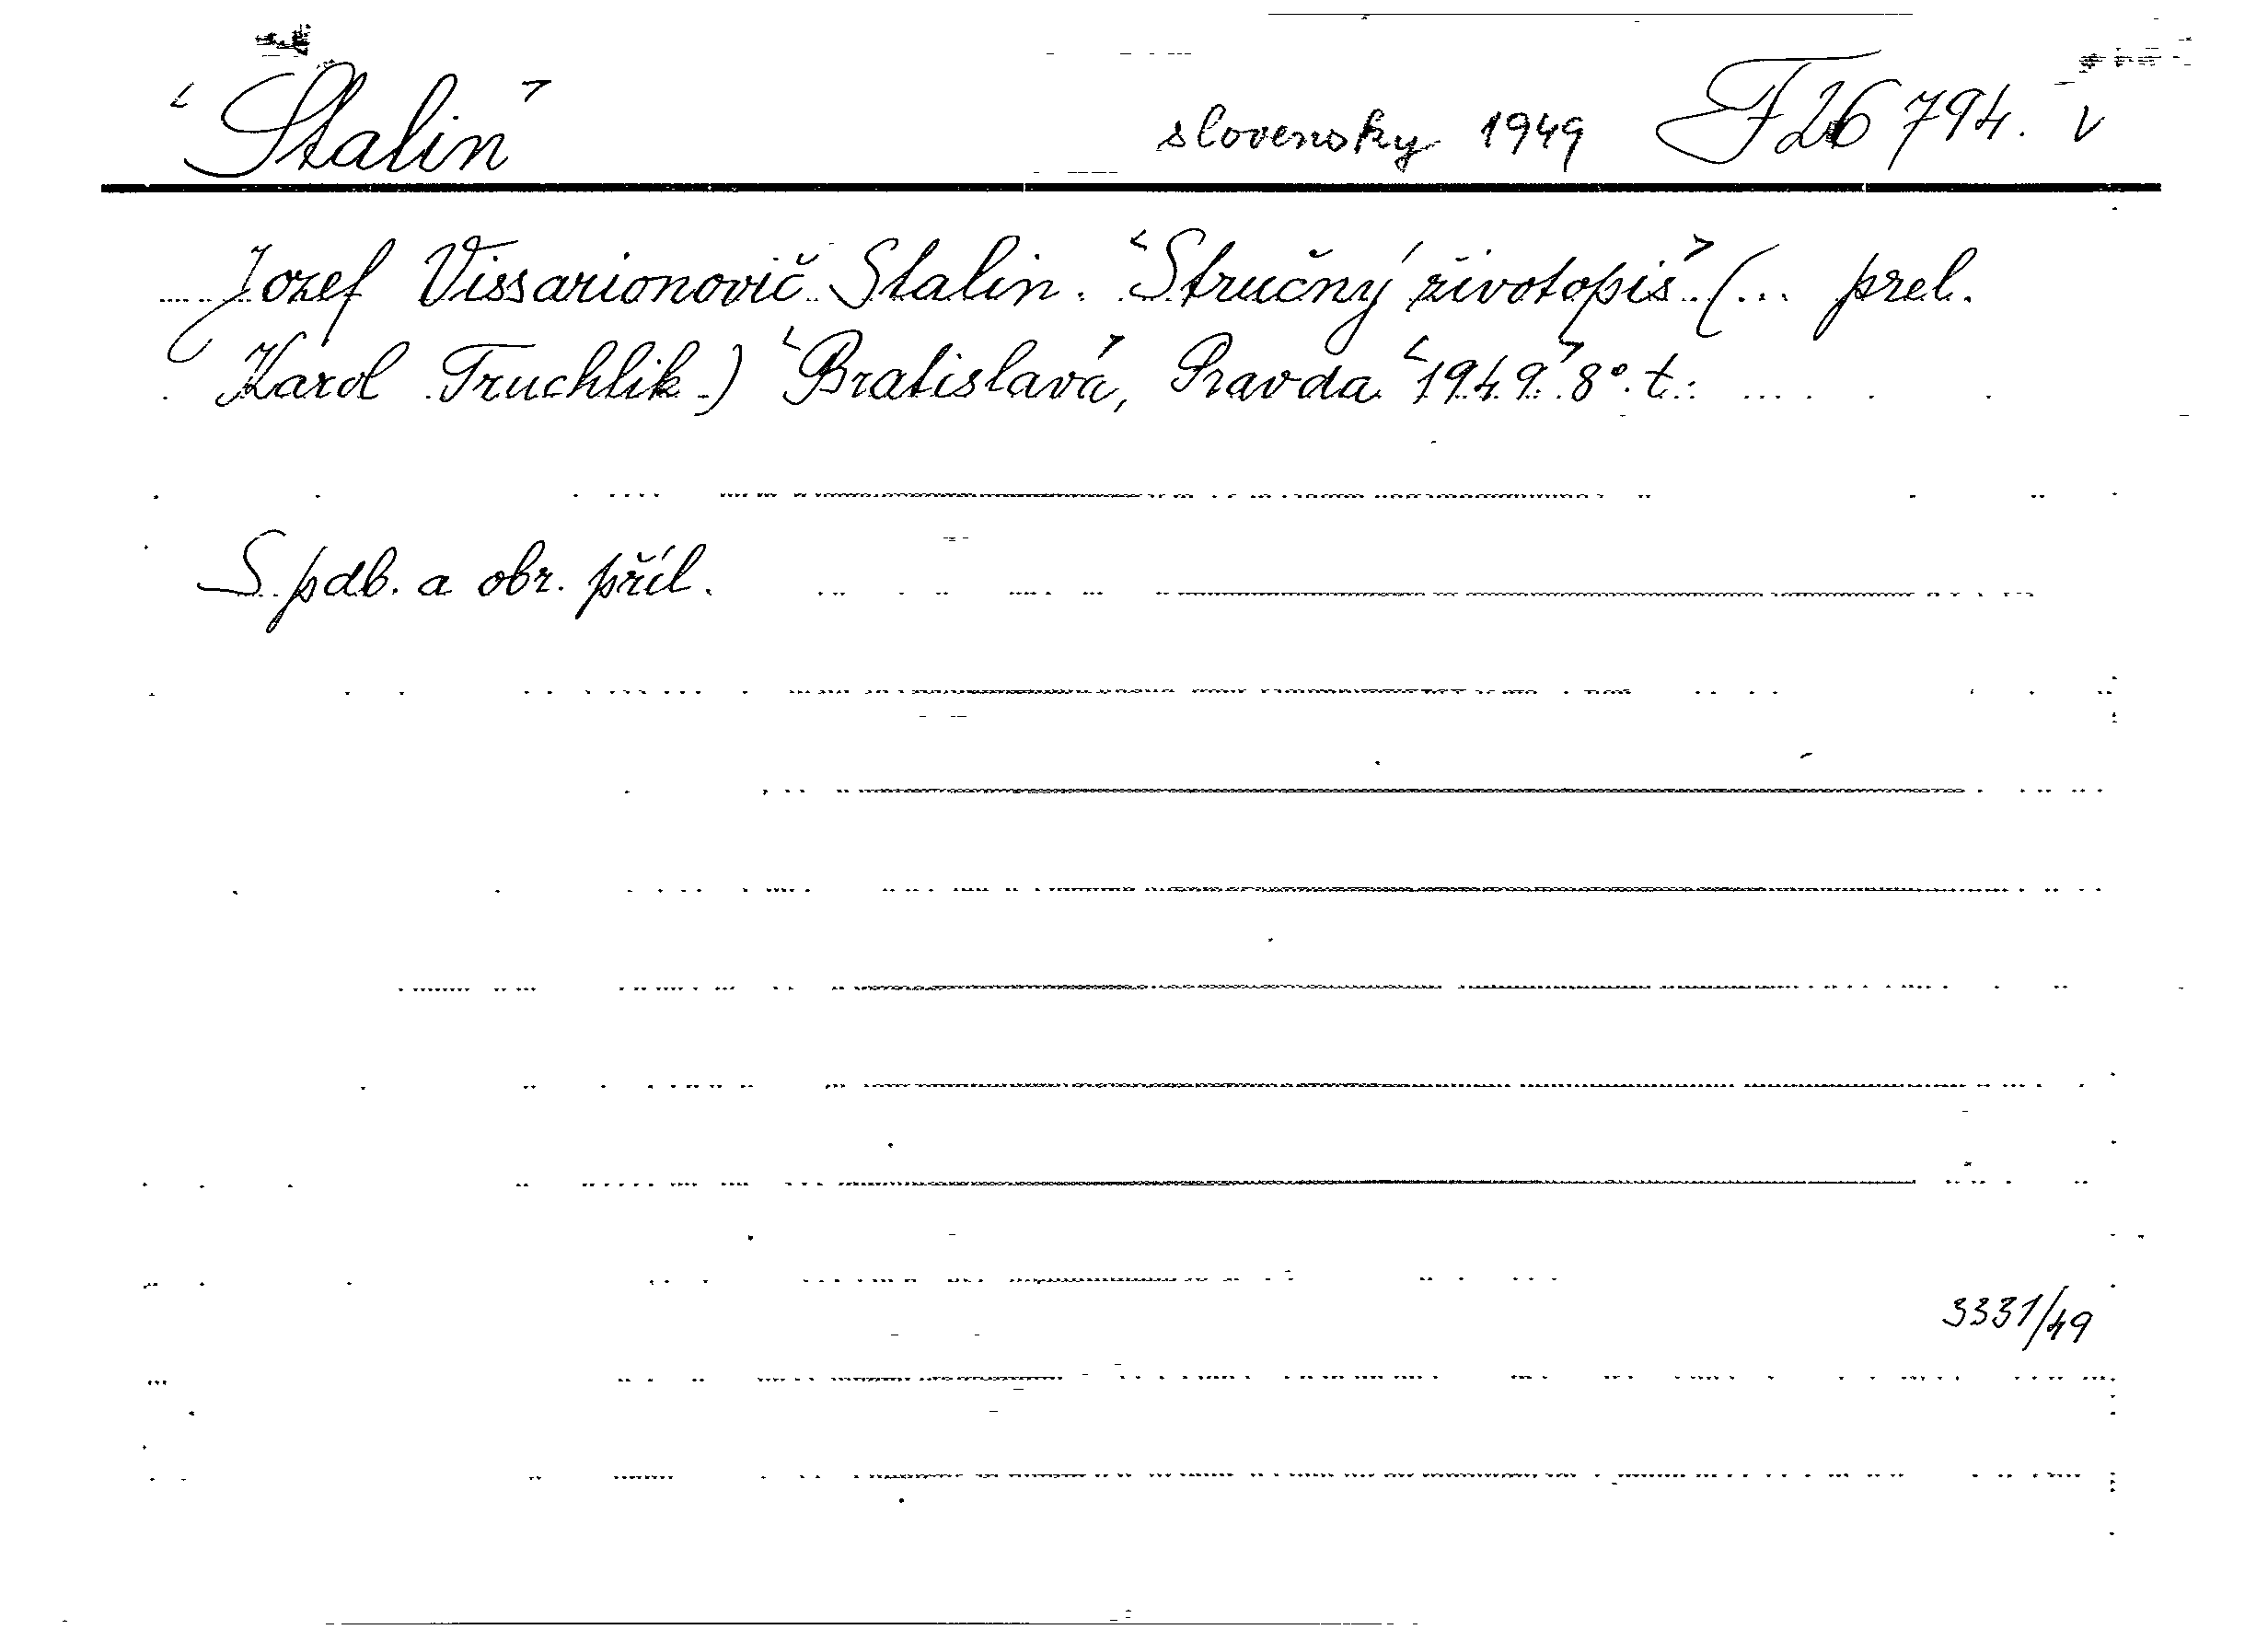 <Stalin> slovensky 1949 F 26 794. v
Jozef Vissarionovič Stalin. <Stručný životopis> (... prel.
Karol Truchlik.) <Bratislava>, Pravda <1949> 8°. t.
S pdb. a obr. příl.
3331/49